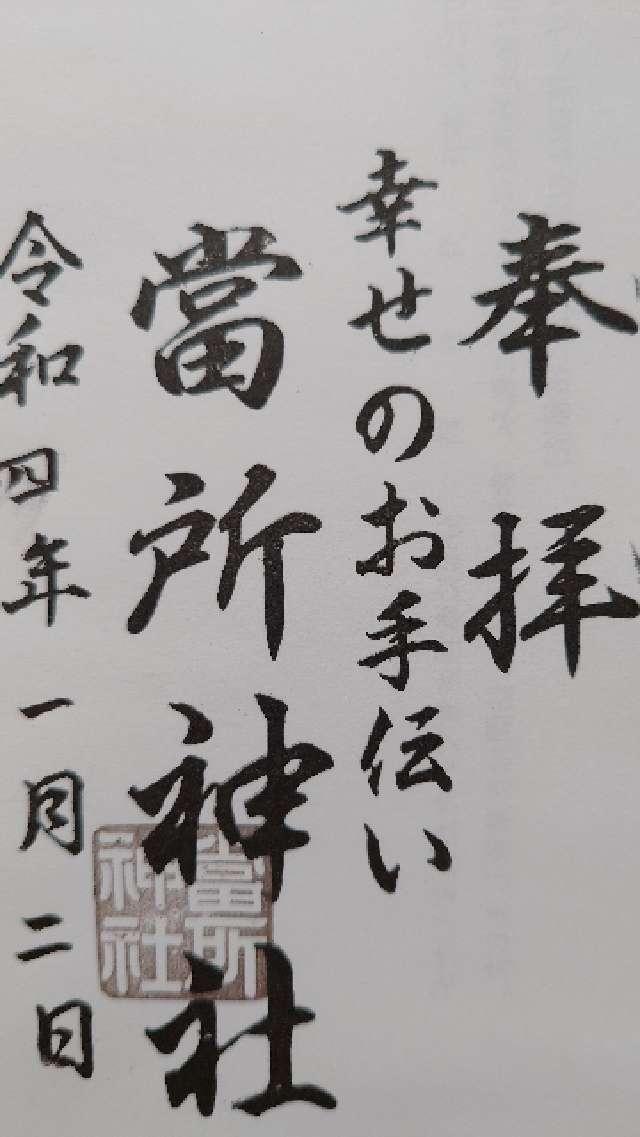 奉拝
幸せのお手伝い
當所神社
當所
神社
令和四年一月二日